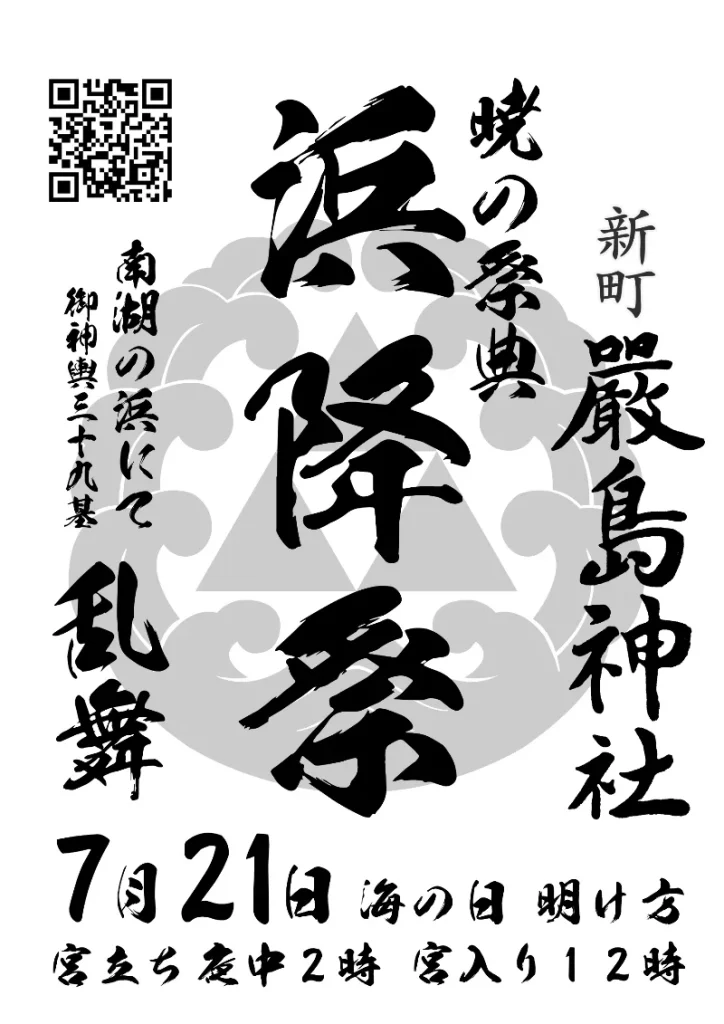 新町
嚴島神社
暁の祭典
浜降祭
南湖の浜にて
御神輿三十九基
乱舞
7月21日 海の日 明け方
宮立ち夜中2時 宮入り12時